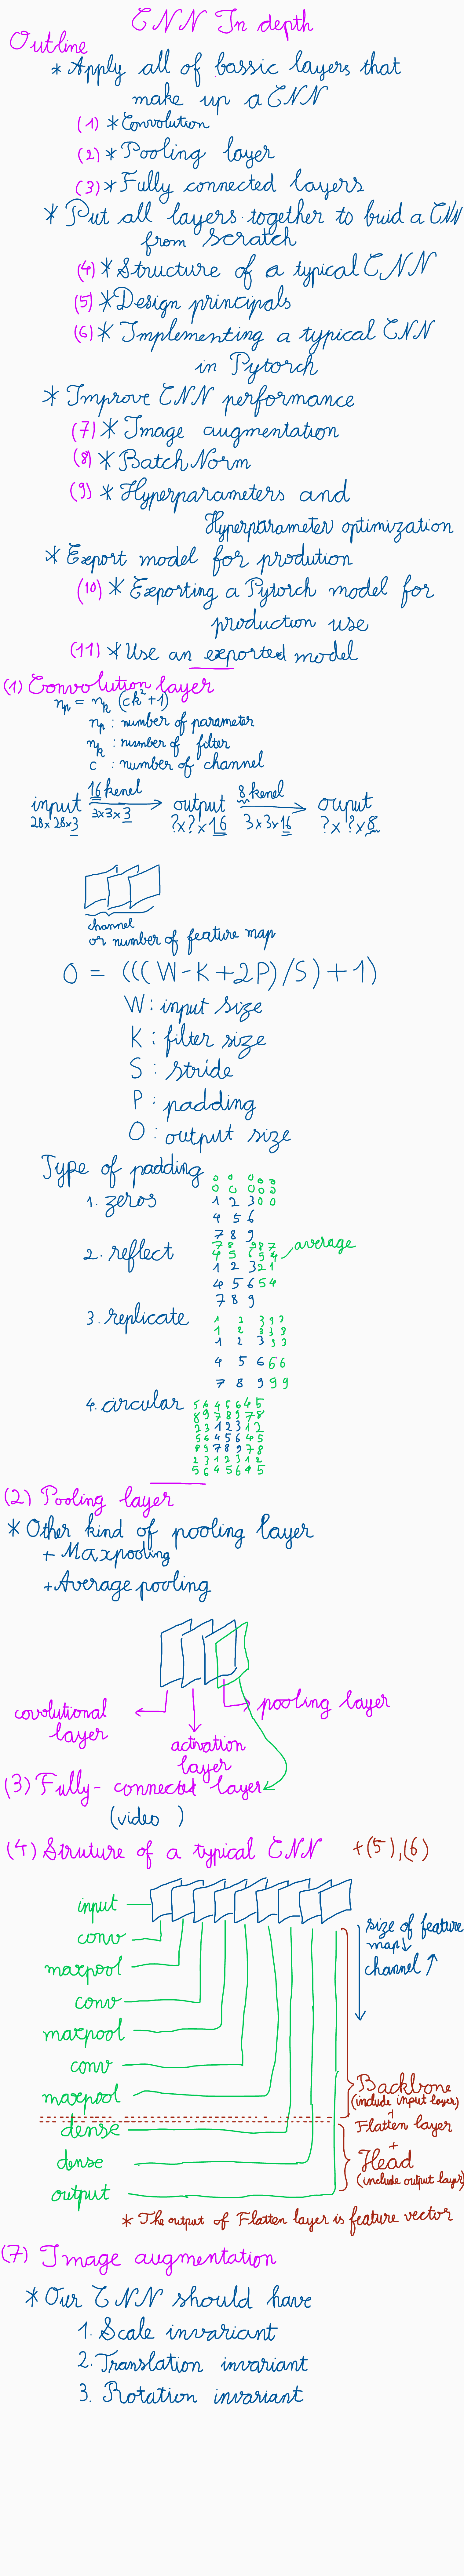 CNN In depth
Outline
* Apply all of bassic layers that
make up a CNN
(1) * Convolution
(2) * Pooling layer
(3) * Fully connected layers
* Put all layers together to buid a CNN
from scratch
(4) * Structure of a typical CNN
(5) * Design principals
(6) * Implementing a typical CNN
in Pytorch
* Improve CNN performance
(7) * Image augmentation
(8) * BatchNorm
(9) * Hyperparameters and
Hyperparameter optimization
* Export model for prodution
(10) * Exporting a Pytorch model for
production use
(11) * Use an exported model
(1) Convolution layer
n_p = n_k (ck² + 1)
n_p : number of parameter
n_k : number of filter
c : number of channel
input 16 kenel output 8 kenel ouput
28x28x3 3x3x3 ?x?x16 3x3x16 ?x?x8
channel
or number of feature map
O = (((W-K+2P)/S)+1)
W: input size
K: filter size
S: stride
P: padding
O: output size
Type of padding
0 0 0 0 0
0 0 0 0 0
1. zeros 1 2 3 0 0
4 5 6
7 8 9
7 8 9 8 7
2. reflect 4 5 6 5 4 average
1 2 3 2 1
4 5 6 5 4
7 8 9
3. replicate 1 2 3 3 3
1 2 3 3 3
1 2 3 3 3
4 5 6 6 6
7 8 9 9 9
4. circular 5 6 4 5 6 4 5
8 9 7 8 9 7 8
2 3 1 2 3 1 2
5 6 4 5 6 4 5
8 9 7 8 9 7 8
2 3 1 2 3 1 2
5 6 4 5 6 4 5
(2) Pooling layer
* Other kind of pooling layer
+ Maxpooling
+ Average pooling
covolutional
layer
activation
layer
pooling layer
(3) Fully-connected layer
(video )
(4) Struture of a typical CNN +(5),(6)
input
conv
maxpool
conv
maxpool
conv
maxpool
dense
dense
output
size of feature
map ↓
channel ↑
Backbone
(include input layer)
+
Flatten layer
+
Head
(include output layer)
* The output of Flatten layer is feature vector
(7) Image augmentation
* Our CNN should have
1. Scale invariant
2. Translation invariant
3. Rotation invariant